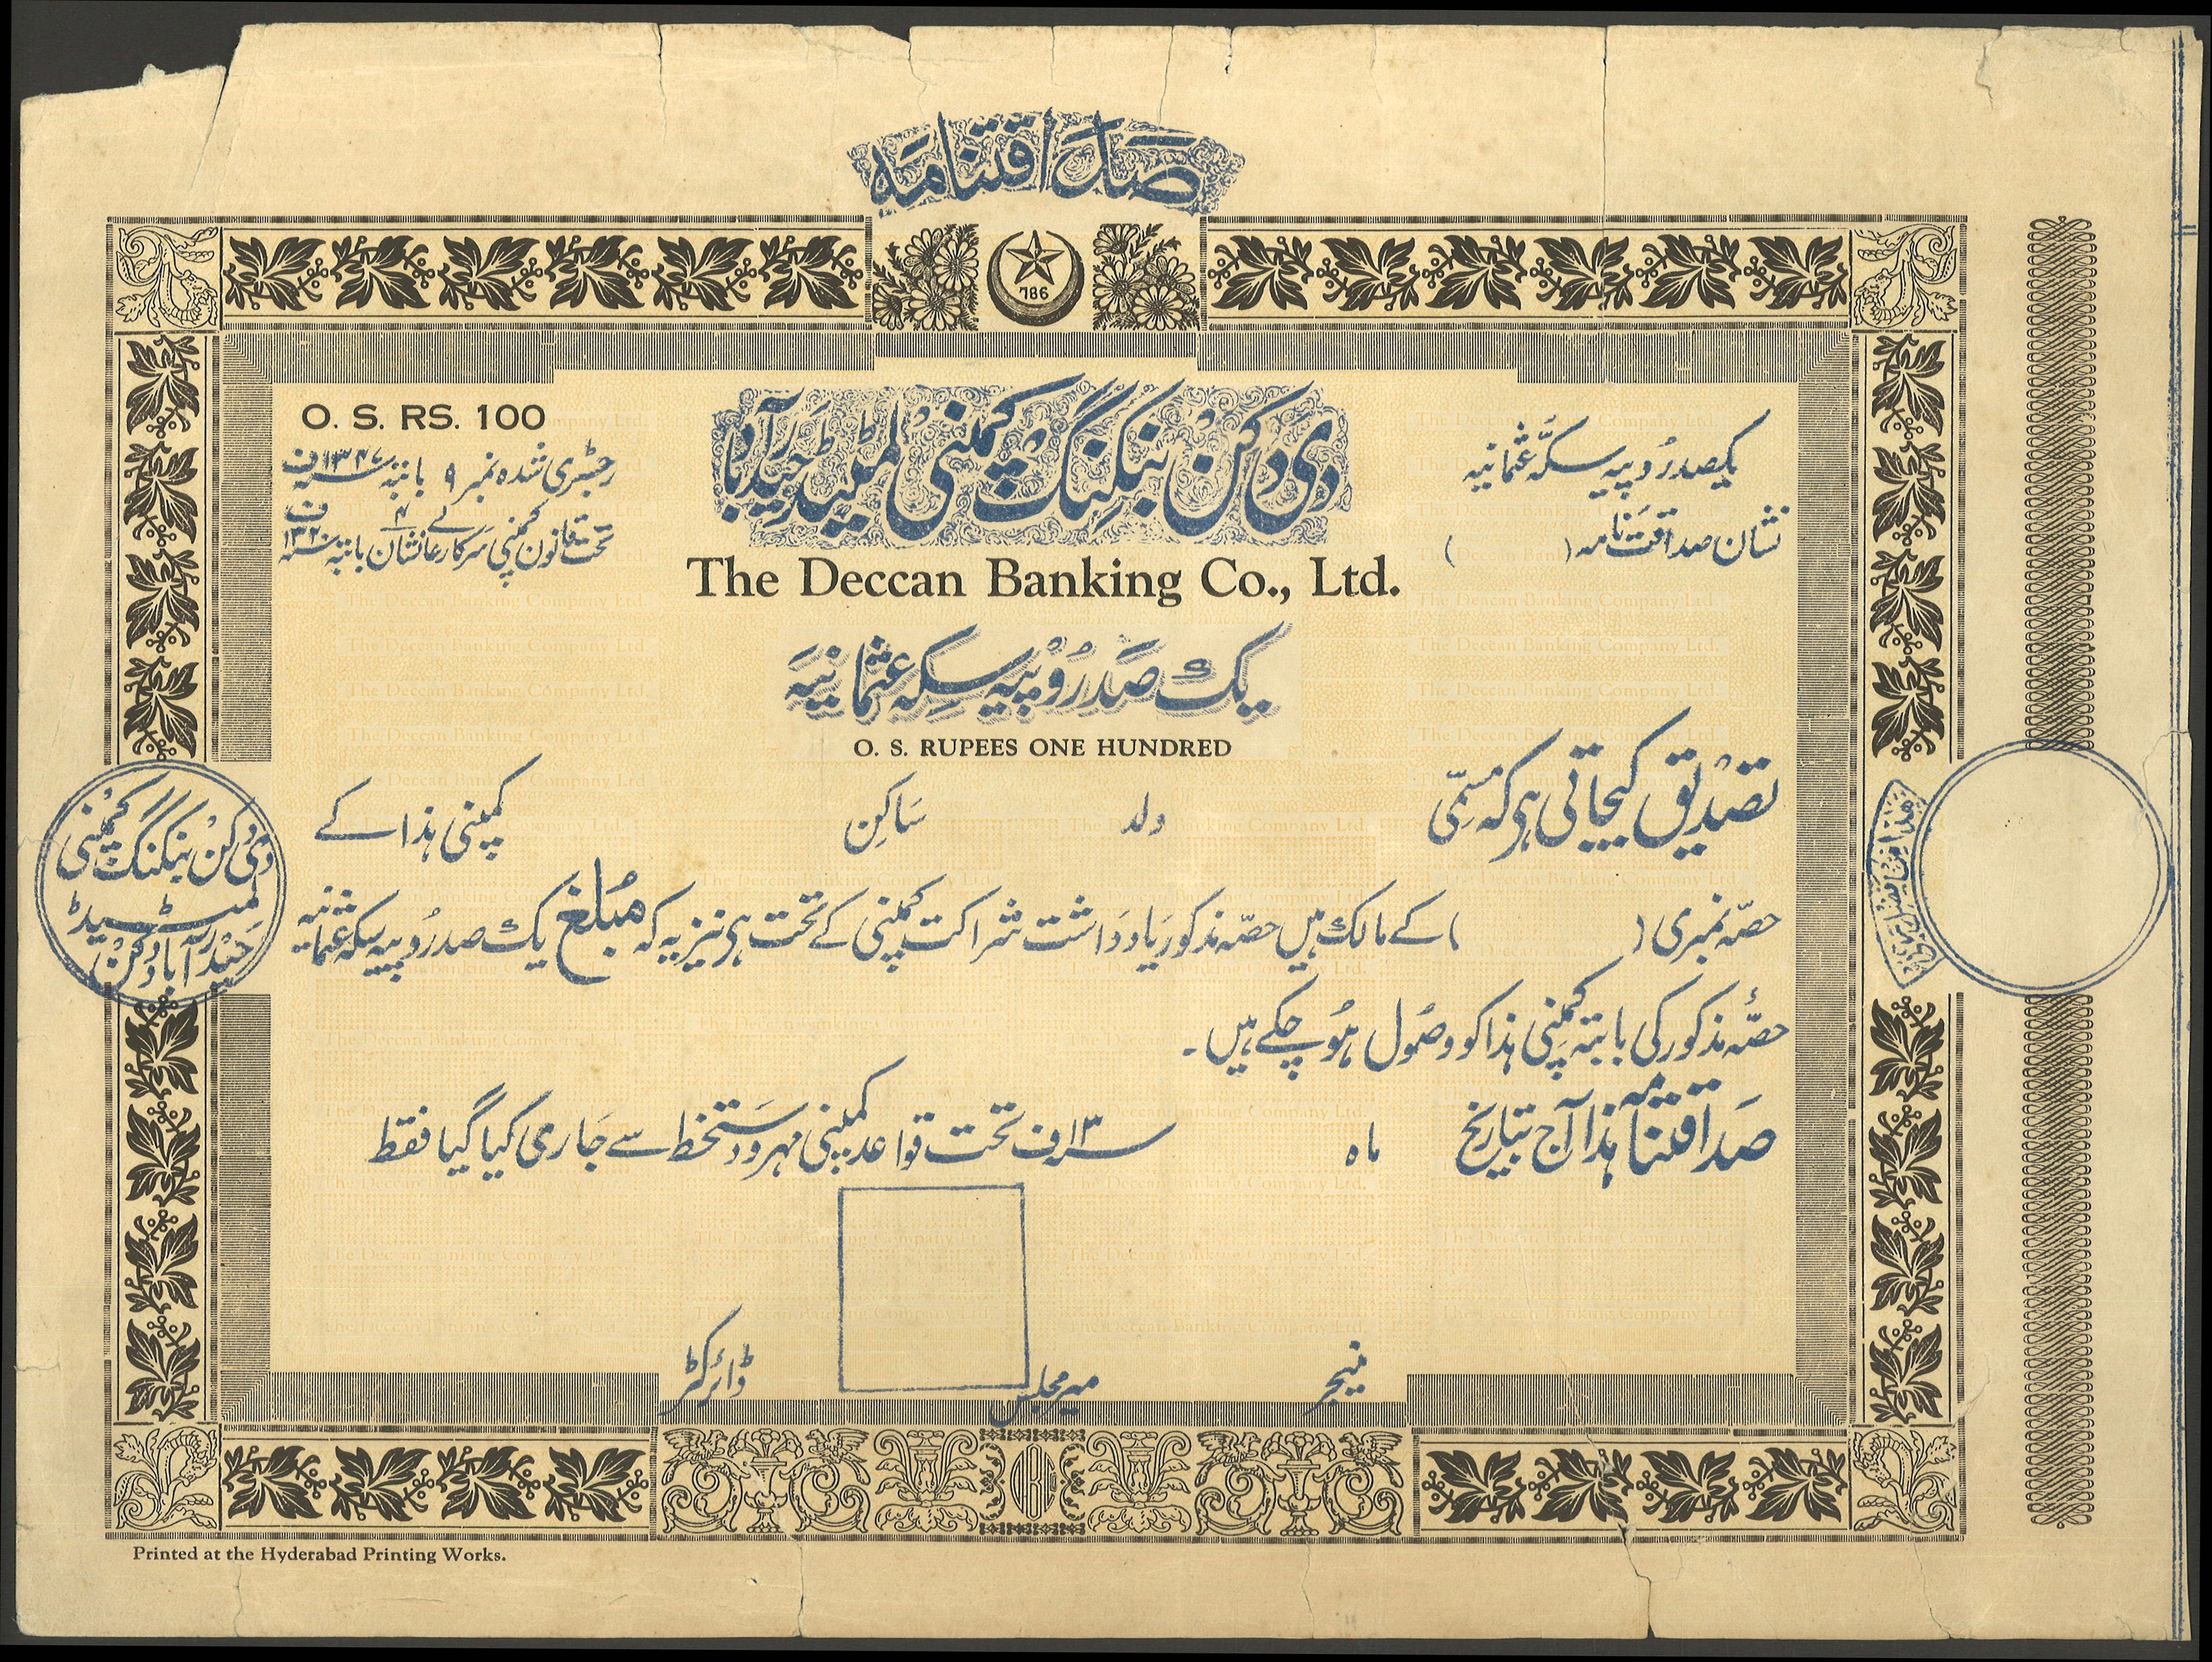 صداقتنامہ
786
O. S. RS. 100
رجسٹری شدہ نمبر ۹ بابتہ سنہ ۱۳۴۷ ف
تحت قانون کمپنی سرکارعالی نشان ۴ بابتہ سنہ ۱۳۲۰ ف
یکصد روپیہ سکّہ عثمانیہ
نشان صداقت نامہ ( )
دی دکن بنکنگ کمپنی لمیٹیڈ حیدرآباد
The Deccan Banking Co., Ltd.
یک صد روپیہ سکہ عثمانیہ
O. S. RUPEES ONE HUNDRED
تصدیق کیجاتی ہی کہ مسمّی ولد ساکن کمپنی ہذا کے
حصّہ نمبری ( ) کے مالک ہیں حصّہ مذکور یادداشت شراکت کمپنی کے تحت ہی نیز یہ کہ مبلغ یک صد روپیہ سکہ عثمانیہ
حصّہ مذکور کی بابتہ کمپنی ہذا کو وصول ہو چکے ہیں۔
صداقتنامہ ہذا آج بتاریخ ماہ سنہ ۱۳ ف تحت قواعد کمپنی مہر و دستخط سے جاری کیا گیا فقط
منیجر
میر مجلس
ڈائرکٹر
دی دکن بنکنگ کمپنی
لمیٹیڈ
حیدرآباد دکن
هذا من فضل ربی
Printed at the Hyderabad Printing Works.